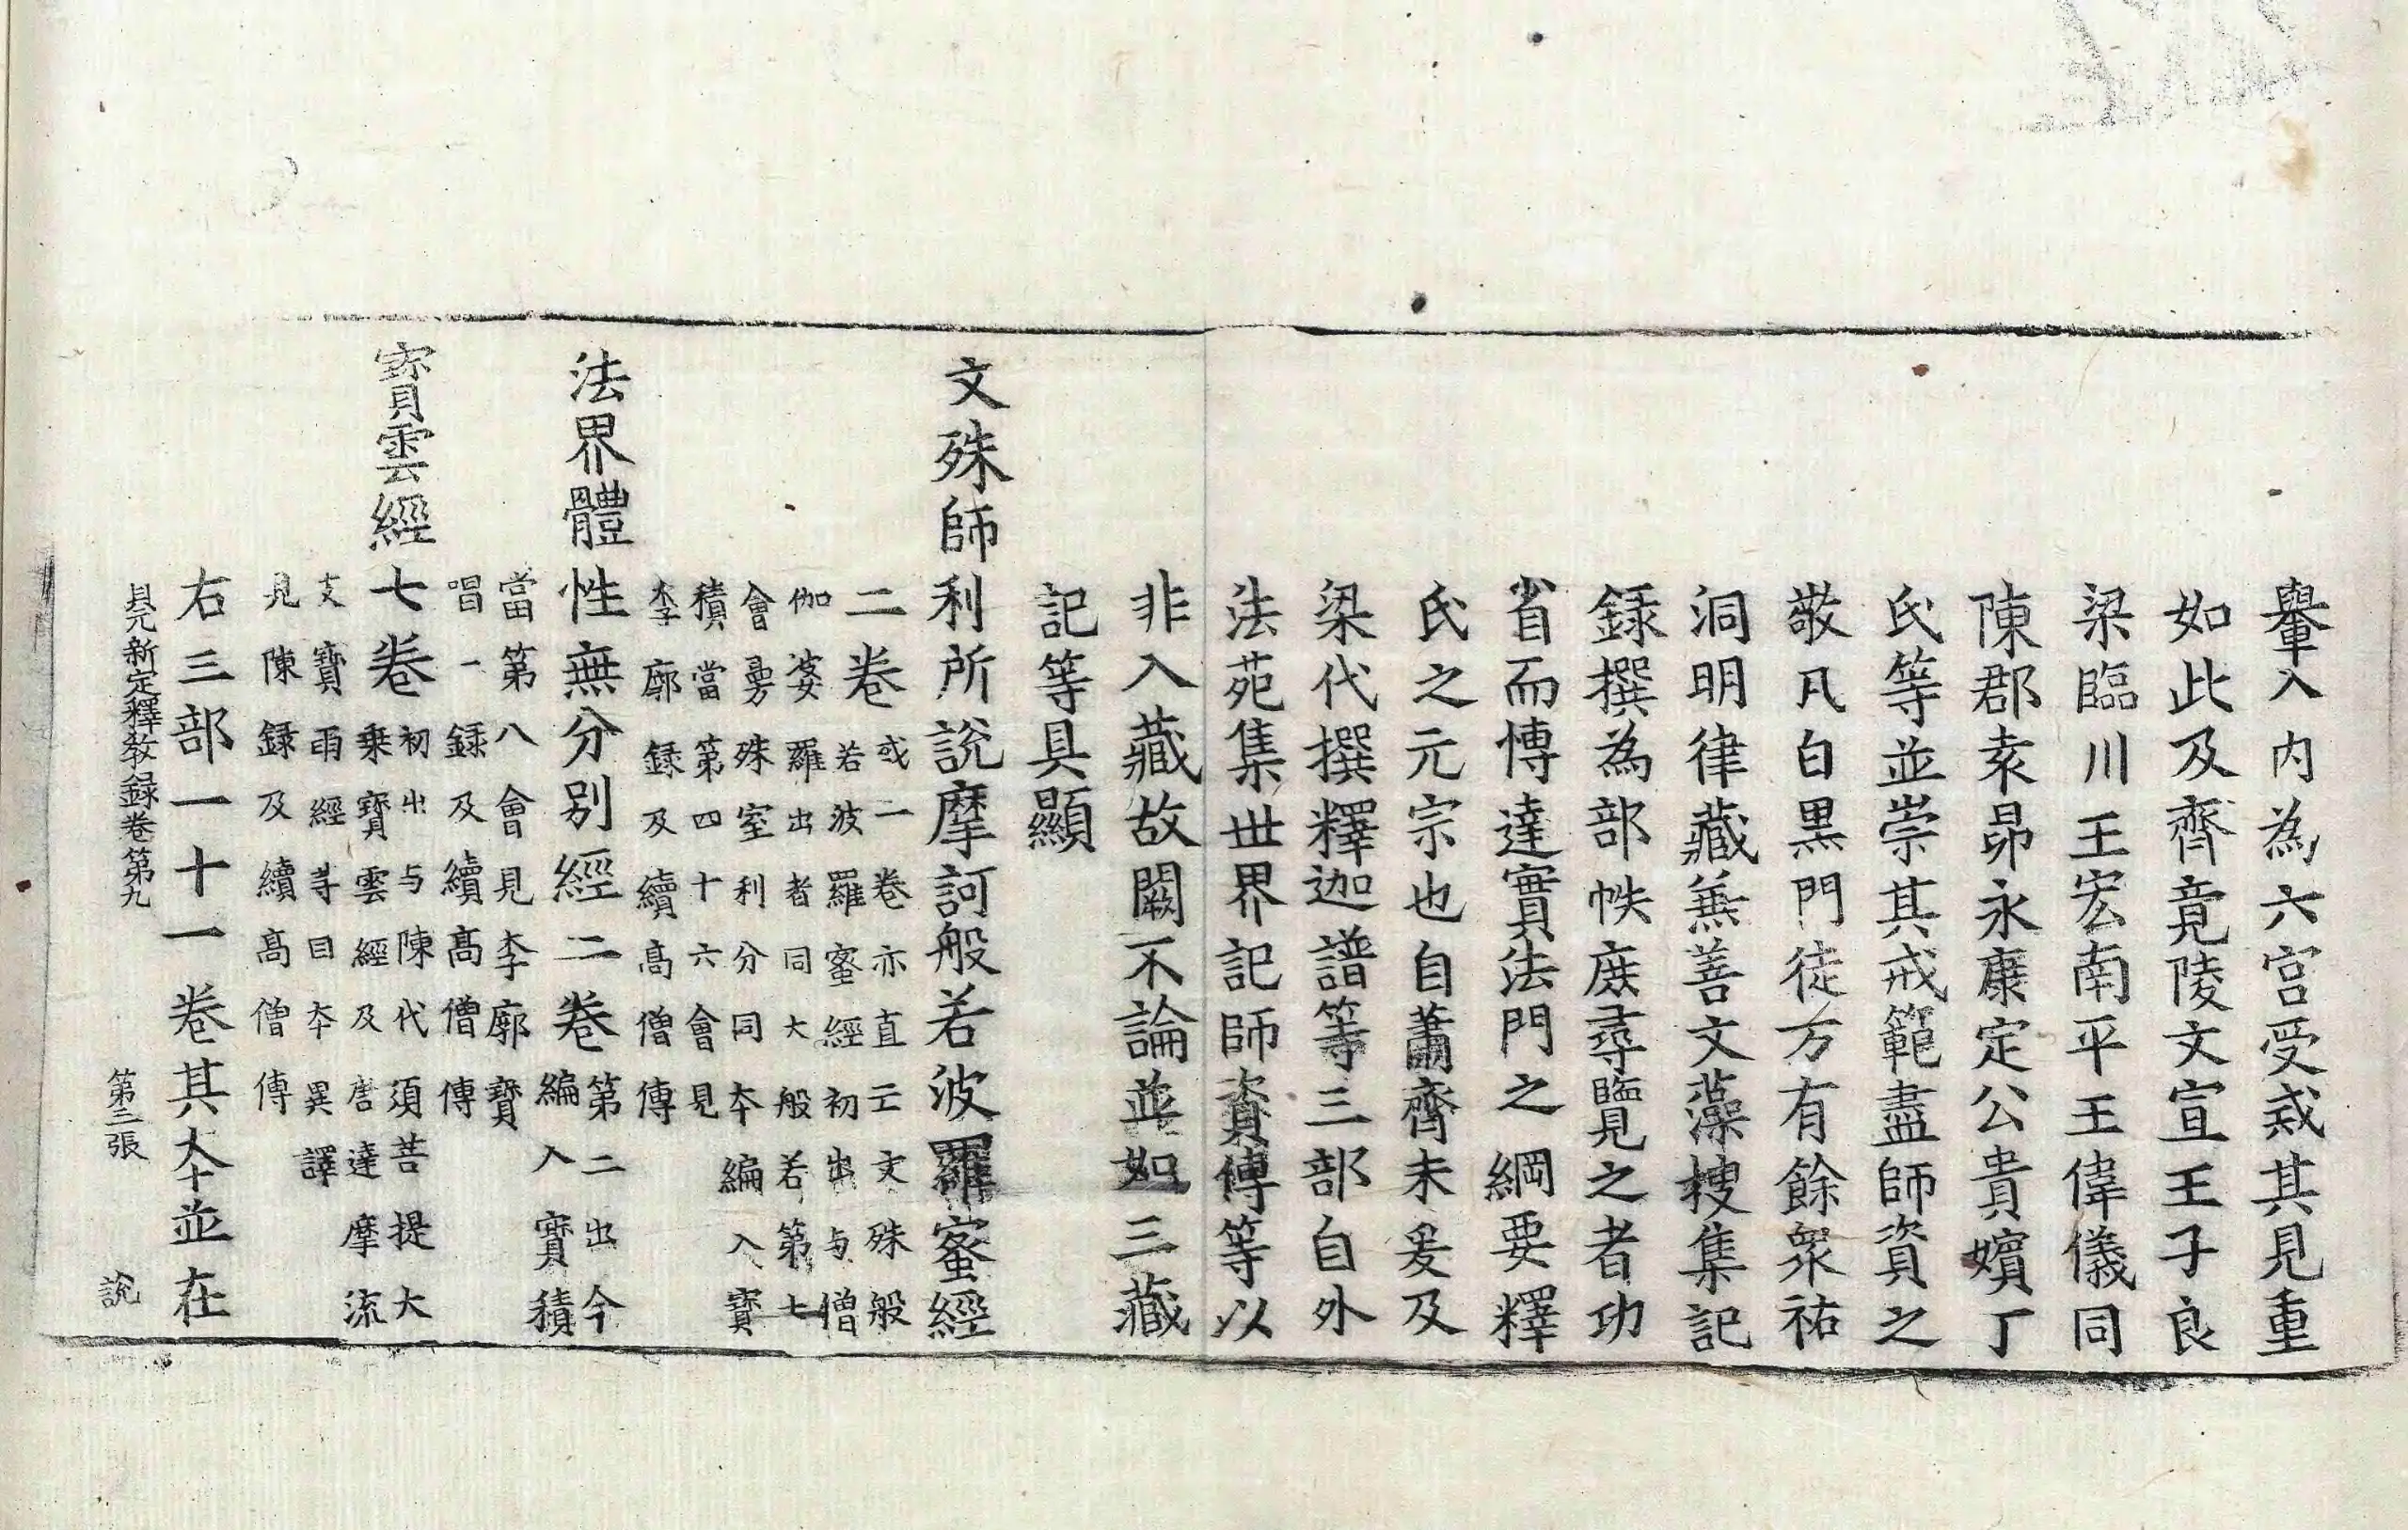 轝入內為六宮受戒其見重
如此及齊竟陵文宣王子良
梁臨川王宏南平王偉儀同
陳郡袁昂永康定公貴嬪丁
氏等並崇其戒範盡師資之
敬凡白黒門徒万有餘衆祐
洞明律藏兼善文藻搜集記
録撰為部帙庶尋覽之者功
省而愽達實法門之綱要釋
氏之元宗也自蕭齊未爰及
梁代撰釋迦譜等三部自外
法苑集世界記師資傳等以
非入藏故闕不論並如三藏
記等具顯
文殊師利所說摩訶般若波羅蜜經
二卷或二卷亦直云文殊般
若波羅蜜經初出与僧
伽婆羅出者同大般若第七
會曼殊室利分同夲編入寶
積當第四十六會見
李廓録及續髙僧傳
法界體性無分別經二卷第二出今
編入寶積
當第八會見李廓寶
唱一録及續髙僧傳
寶雲經七卷初出与陳代湏菩提大
乗寶雲經及唐達摩流
支寶雨經等目夲異譯
見陳録及續髙僧傳
右三部一十一卷其夲並在
貝元新定釋敎録卷第九 第三張 說